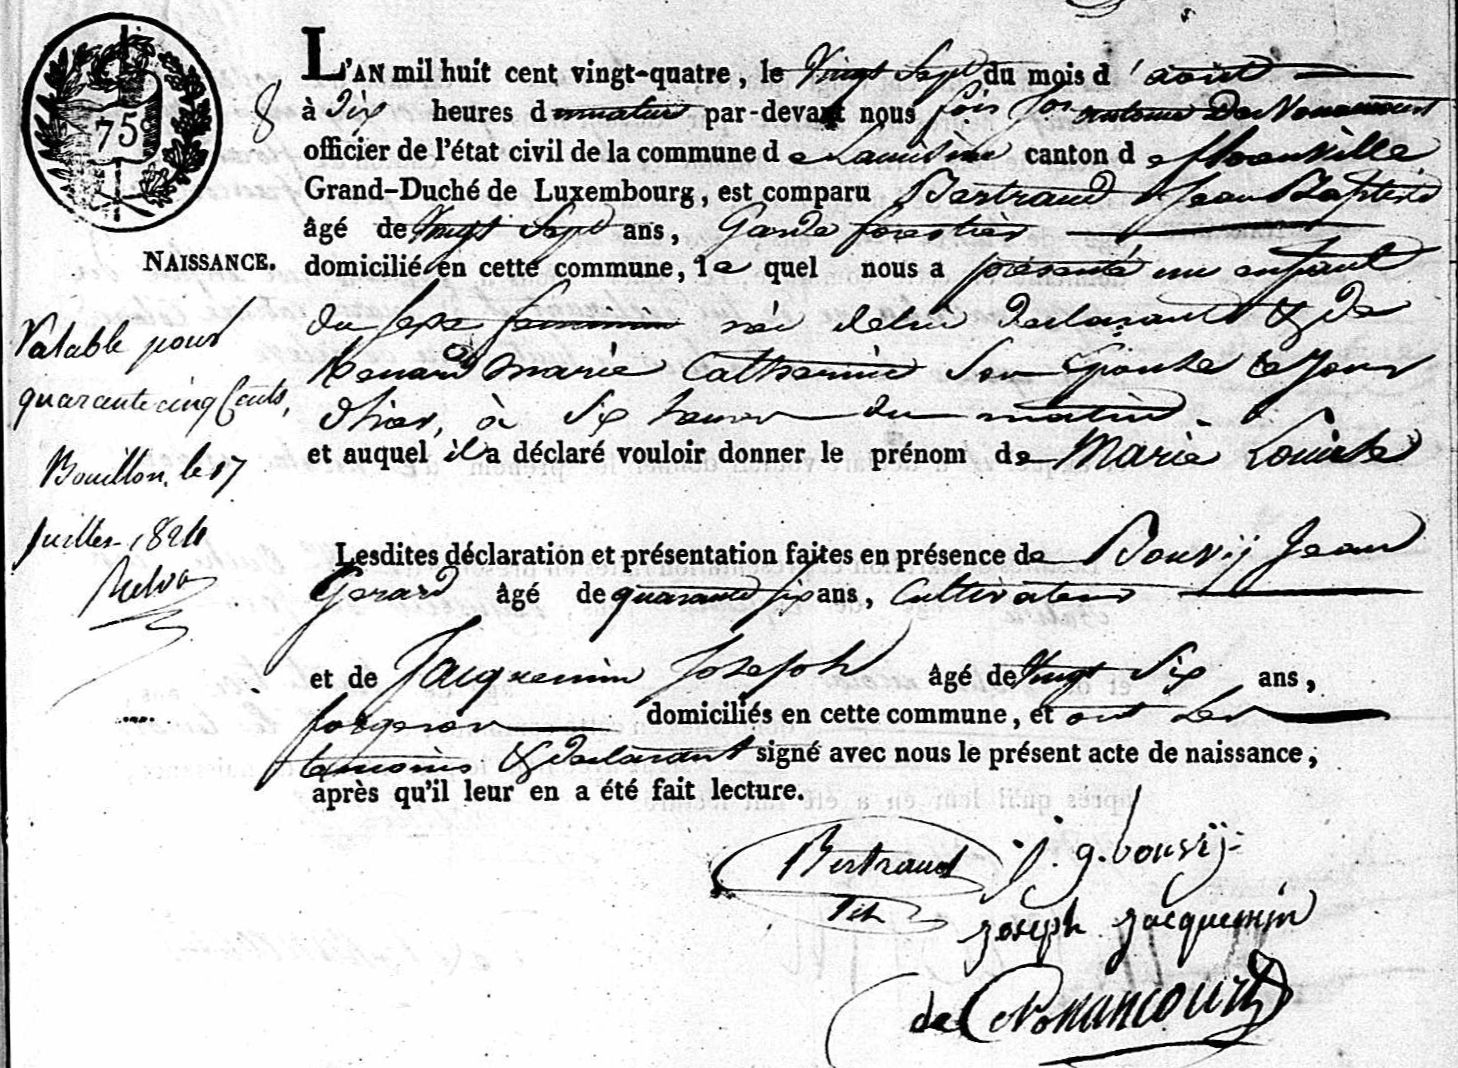 75
8
L'AN mil huit cent vingt-quatre, le Vingt Sept du mois d'août
à Dix heures du matin par-devant nous antoine De Nonancourt
officier de l'état civil de la commune de canton de florenville
Grand-Duché de Luxembourg, est comparu Bertrand Jean Baptiste
âgé de Vingt Sept ans, Garde forestier
NAISSANCE.
domicilié en cette commune, le quel nous a présenté un enfant
du sexe feminin née delui declarant & de
Renard marie Catherine Son Epouse le jour
d'hier, à Six heures du matin
et auquel il a déclaré vouloir donner le prénom de Marie Louise
Lesdites déclaration et présentation faites en présence de Bouvÿ Jean
Gerard âgé de quarante six ans, Cultivateur
et de Jacquemin Joseph âgé de Vingt Six ans,
forgeron domiciliés en cette commune, et ont les
temoins & declarant signé avec nous le présent acte de naissance,
après qu'il leur en a été fait lecture.
Valable pour
quarante cinq Cents,
Bouillon, le 17
Juillet 1824
Bertrand
j. g. bouvÿ
joseph jacquemin
de Nonancourt